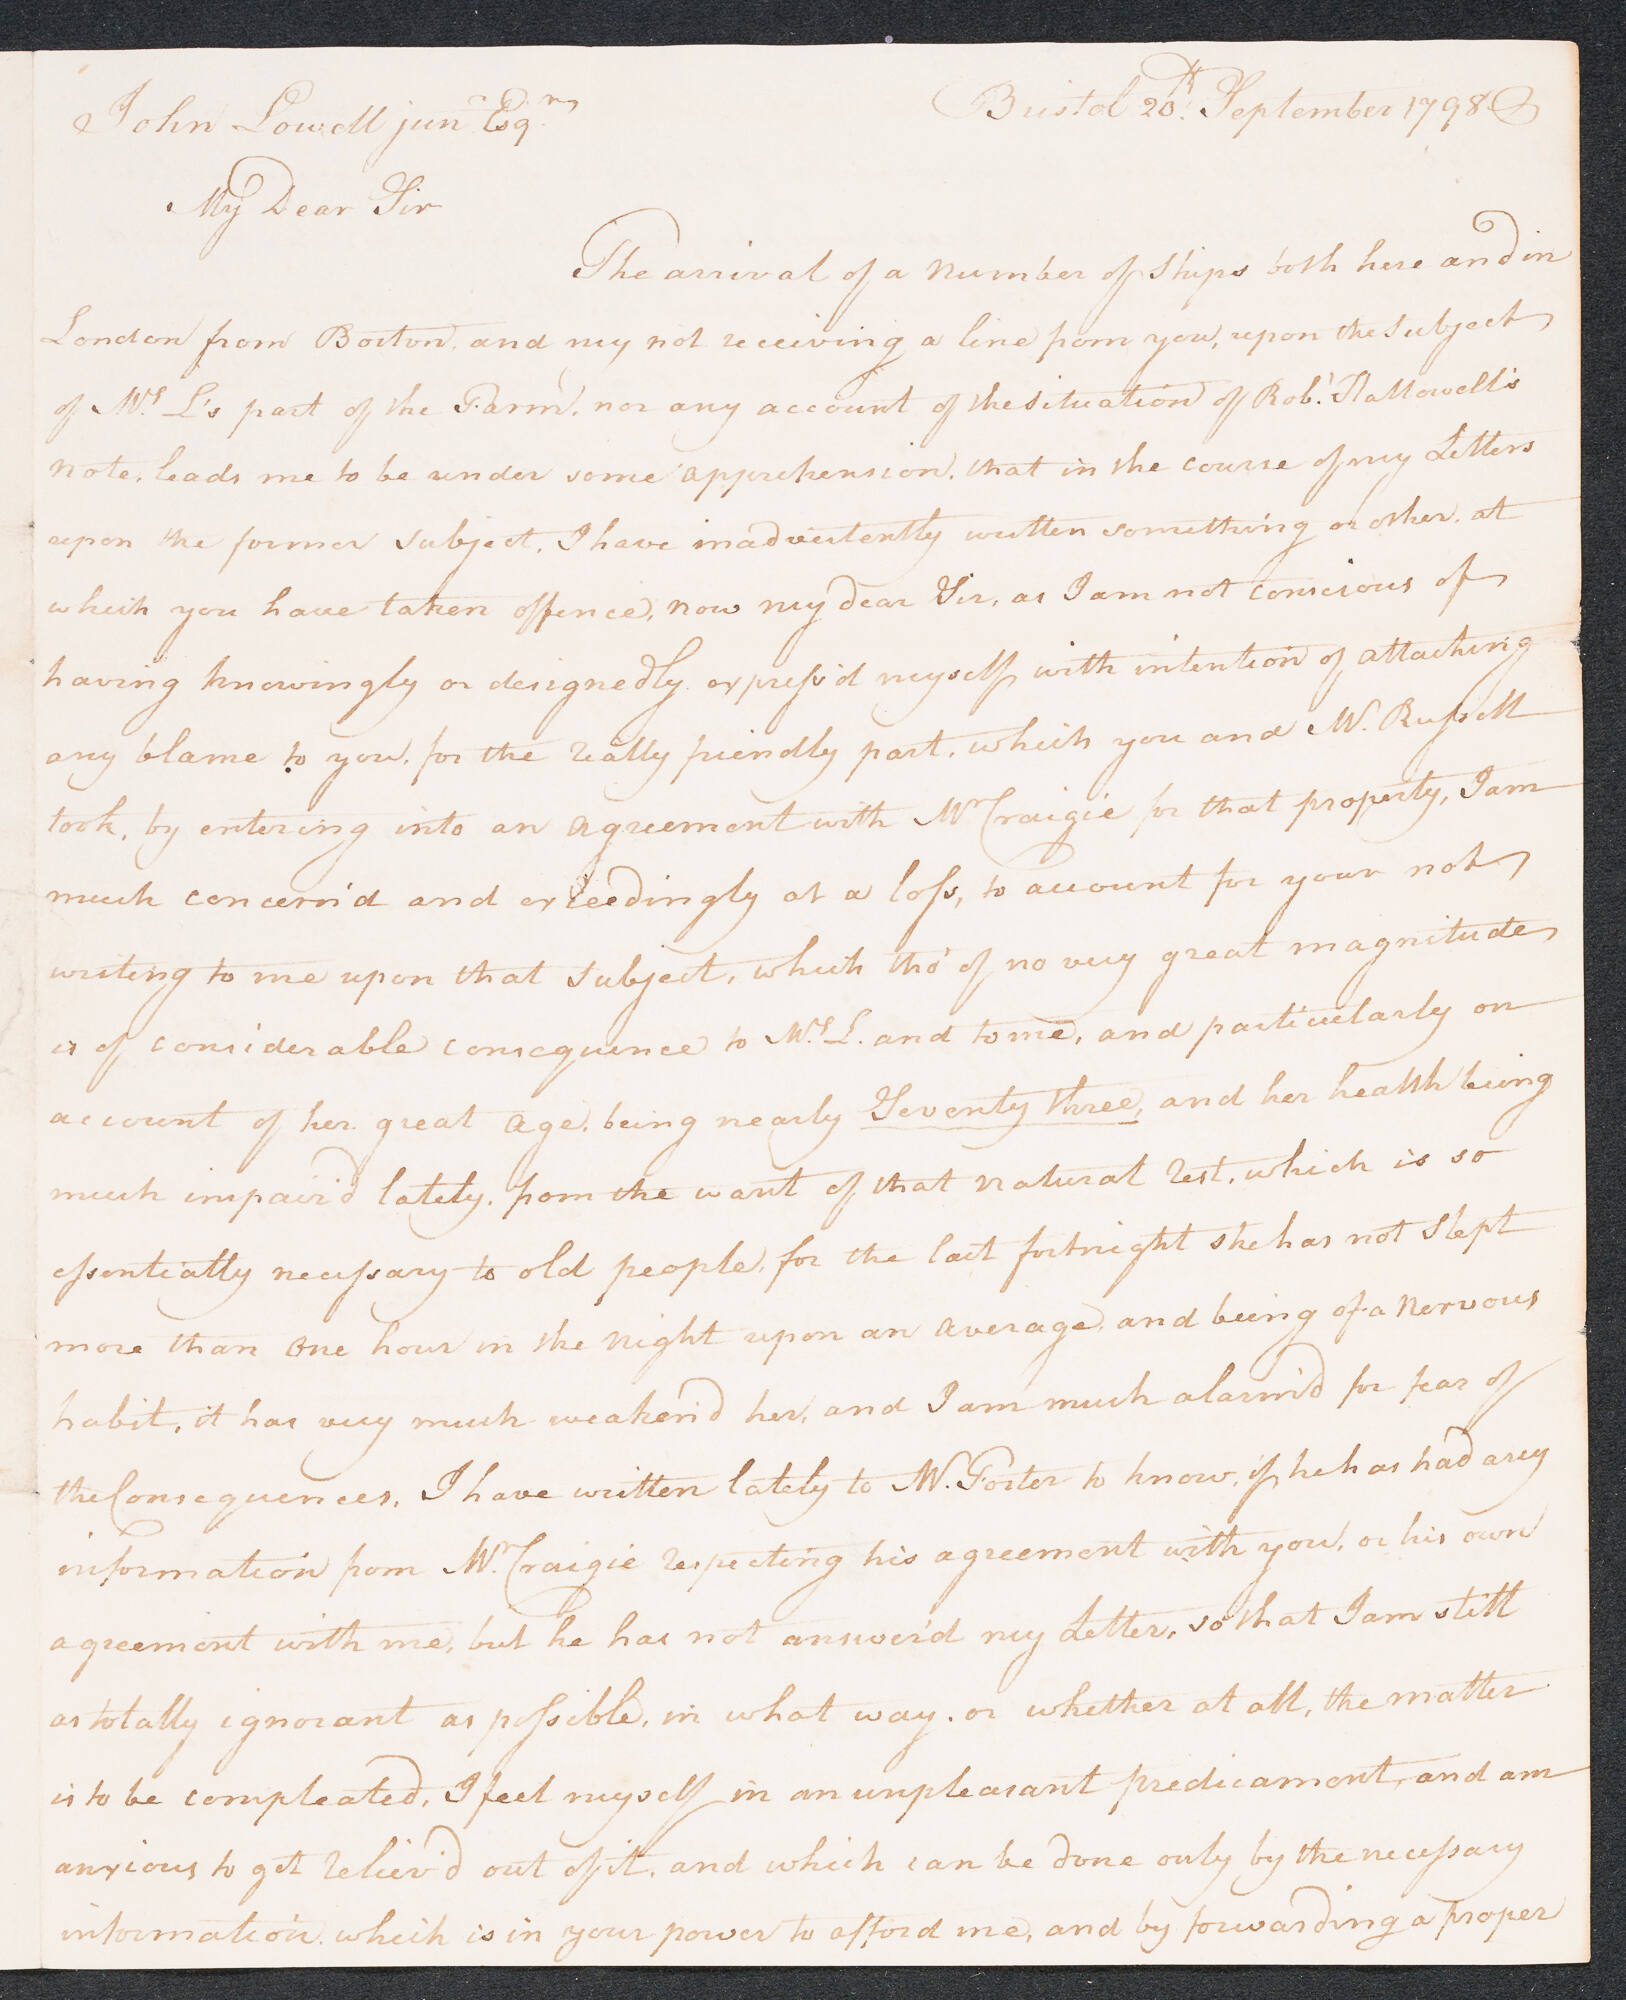 Bristol 20th September 1798
John Lowell junr Esqr
My Dear Sir
The arrival of a number of Ships both here and in
London from Boston, and my not receiving a line from you, upon the Subject
of Mrs L's part of the Farm, nor any account of the situation of Robt Hallowell's
note, leads me to be under some apprehension, that in the course of my Letters
upon the former subject, I have inadvertently written something or other, at
which you have taken offence, now my dear Sir, as I am not conscious of
having knowingly or designedly express'd myself with intention of attaching
any blame to you, for the really friendly part, which you and Mr. Russell
took, by entering into an agreement with Mr Craigie for that property, I am
much concern'd and exceedingly at a loss, to account for your not
writing to me upon that subject, which tho' of no very great magnitude,
is of considerable consequence to Mrs L. and to me, and particularly on
account of her great age, being nearly Seventy three, and her health being
much impair'd lately, from the want of that natural rest, which is so
essentially necessary to old people, for the last fortnight she has not slept
more than one hour in the night upon an average, and being of a nervous
habit, it has very much weaken'd her, and I am much alarm'd for fear of
the Consequences, I have written lately to Mr. Foster to know, if he has had any
information from Mr. Craigie respecting his agreement with you, or his own
agreement with me, but he has not answer'd my Letter, so that I am still
as totally ignorant as possible, in what way, or whether at all, the matter
is to be compleated, I feel myself in an unpleasant predicament, and am
anxious to get reliev'd out of it, and which can be done only by the necessary
information which is in your power to afford me, and by forwarding a proper